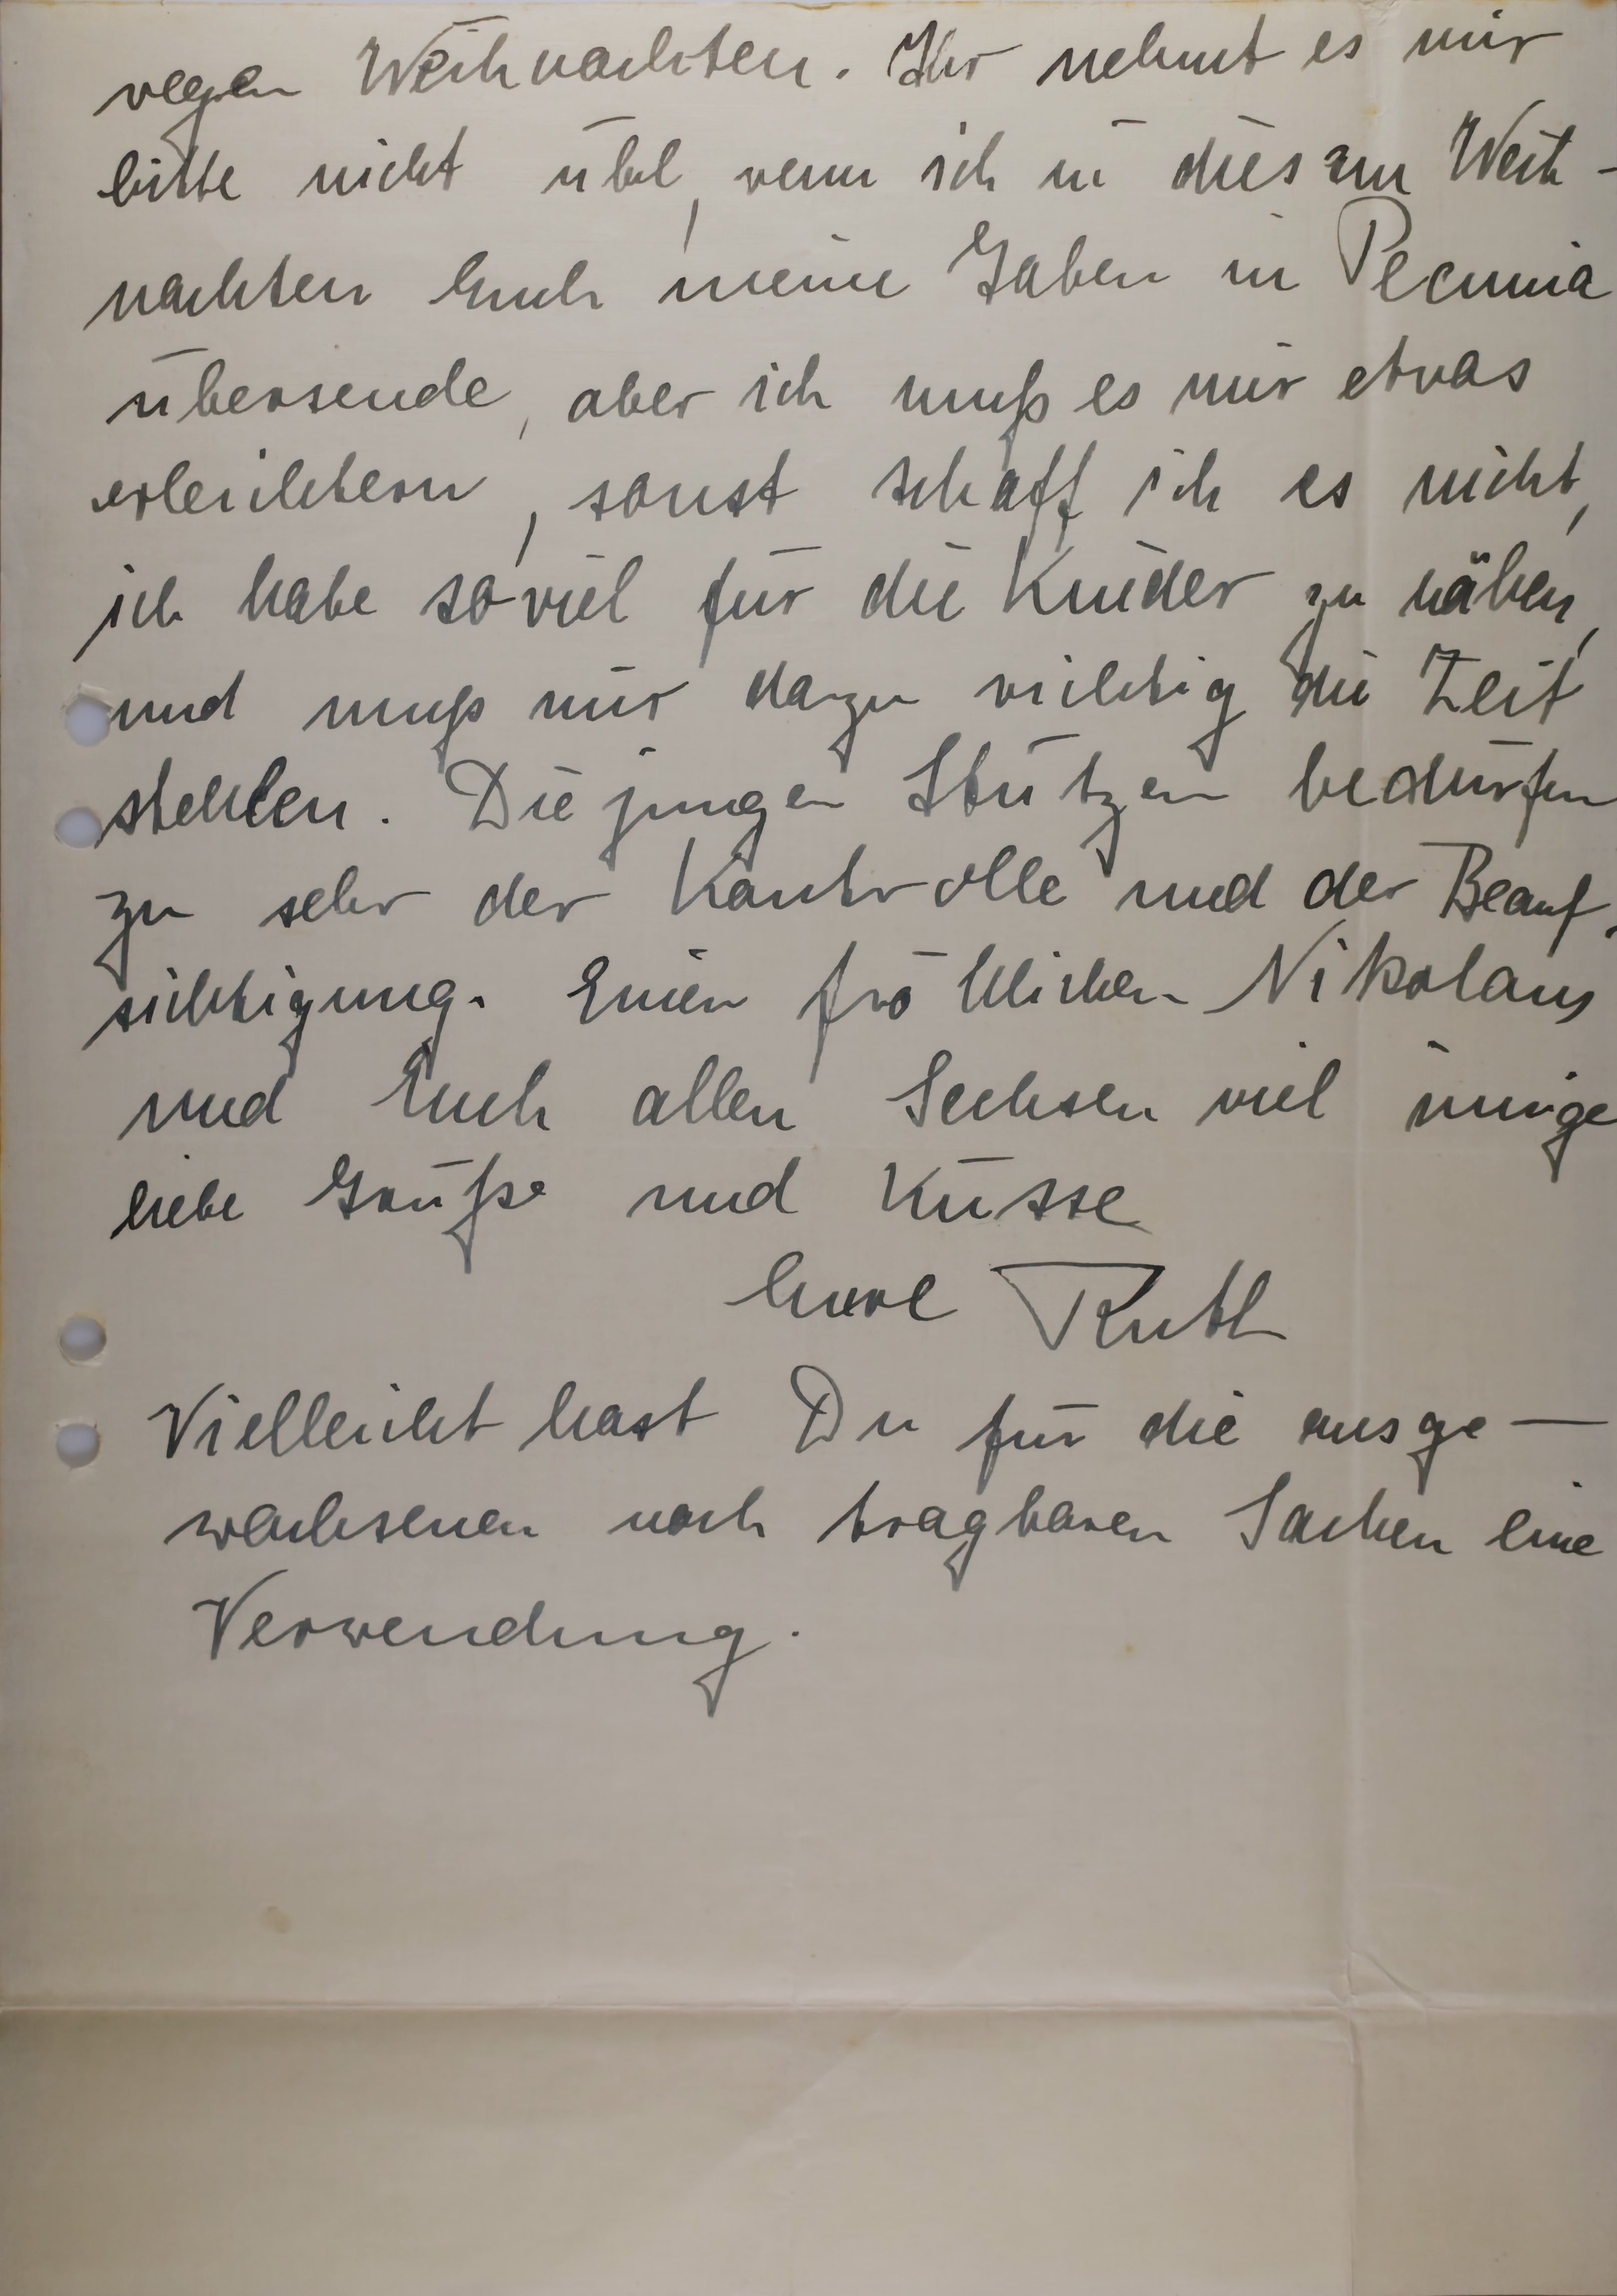 wegen Weihnachten. Ihr nehmt es mir
bitte nicht übel, wenn ich in diesem Weih-
nachten Euch meine Gaben in Pecunia
übersende, aber ich muß es mir etwas
erleichtern, sonst schaff ich es nicht,
ich habe soviel für die Kinder zu nähen,
und muß mir dazu richtig die Zeit
stehlen. Die jungen Stützen bedürfen
zu sehr der Kontrolle und der Beauf-
sichtigung. Einen fröhlichen Nikolaus
und Euch allen Sechsen viel innige
liebe Grüße und Küsse
Eure Ruth
Vielleicht hast Du für die ausge-
wachsenen noch tragbaren Sachen eine
Verwendung.